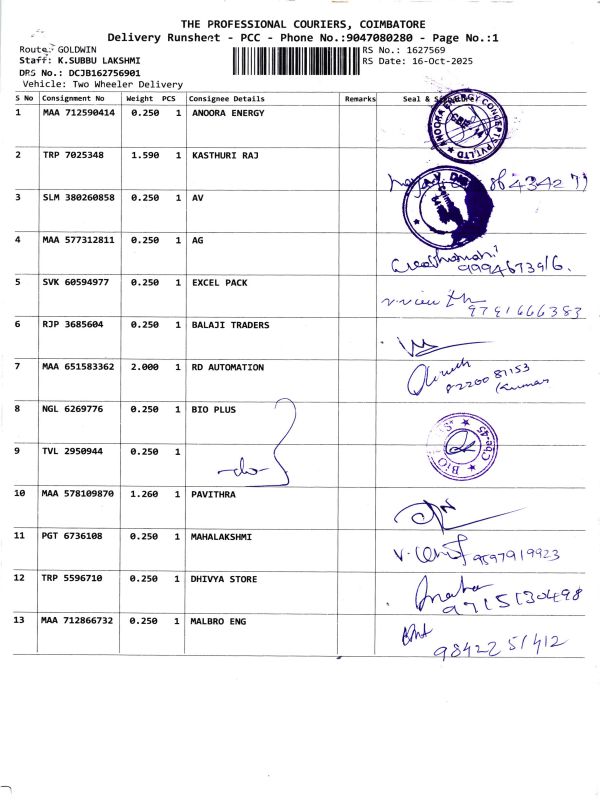 THE PROFESSIONAL COURIERS, COIMBATORE
Delivery Runsheet - PCC - Phone No.:9047080280 - Page No.:1
Route: GOLDWIN
RS No.: 1627569
Staff: K.SUBBU LAKSHMI
RS Date: 16-Oct-2025
DRS No.: DCJB162756901
Vehicle: Two Wheeler Delivery
S No Consignment No Weight PCS Consignee Details Remarks Seal & Signature
1 MAA 712590414 0.250 1 ANOORA ENERGY ANOORA ENERGY CONCEPTS PVT LTD
2 TRP 7025348 1.590 1 KASTHURI RAJ
3 SLM 380260858 0.250 1 AV
4 MAA 577312811 0.250 1 AG 9994673916.
5 SVK 60594977 0.250 1 EXCEL PACK 9791666383
6 RJP 3685604 0.250 1 BALAJI TRADERS
7 MAA 651583362 2.000 1 RD AUTOMATION 82200 81153 Kumar
8 NGL 6269776 0.250 1 BIO PLUS BIO Cbe-45
9 TVL 2950944 0.250 1 -do-
10 MAA 578109870 1.260 1 PAVITHRA
11 PGT 6736108 0.250 1 MAHALAKSHMI 9597919923
12 TRP 5596710 0.250 1 DHIVYA STORE 9715130498
13 MAA 712866732 0.250 1 MALBRO ENG 98422 51412